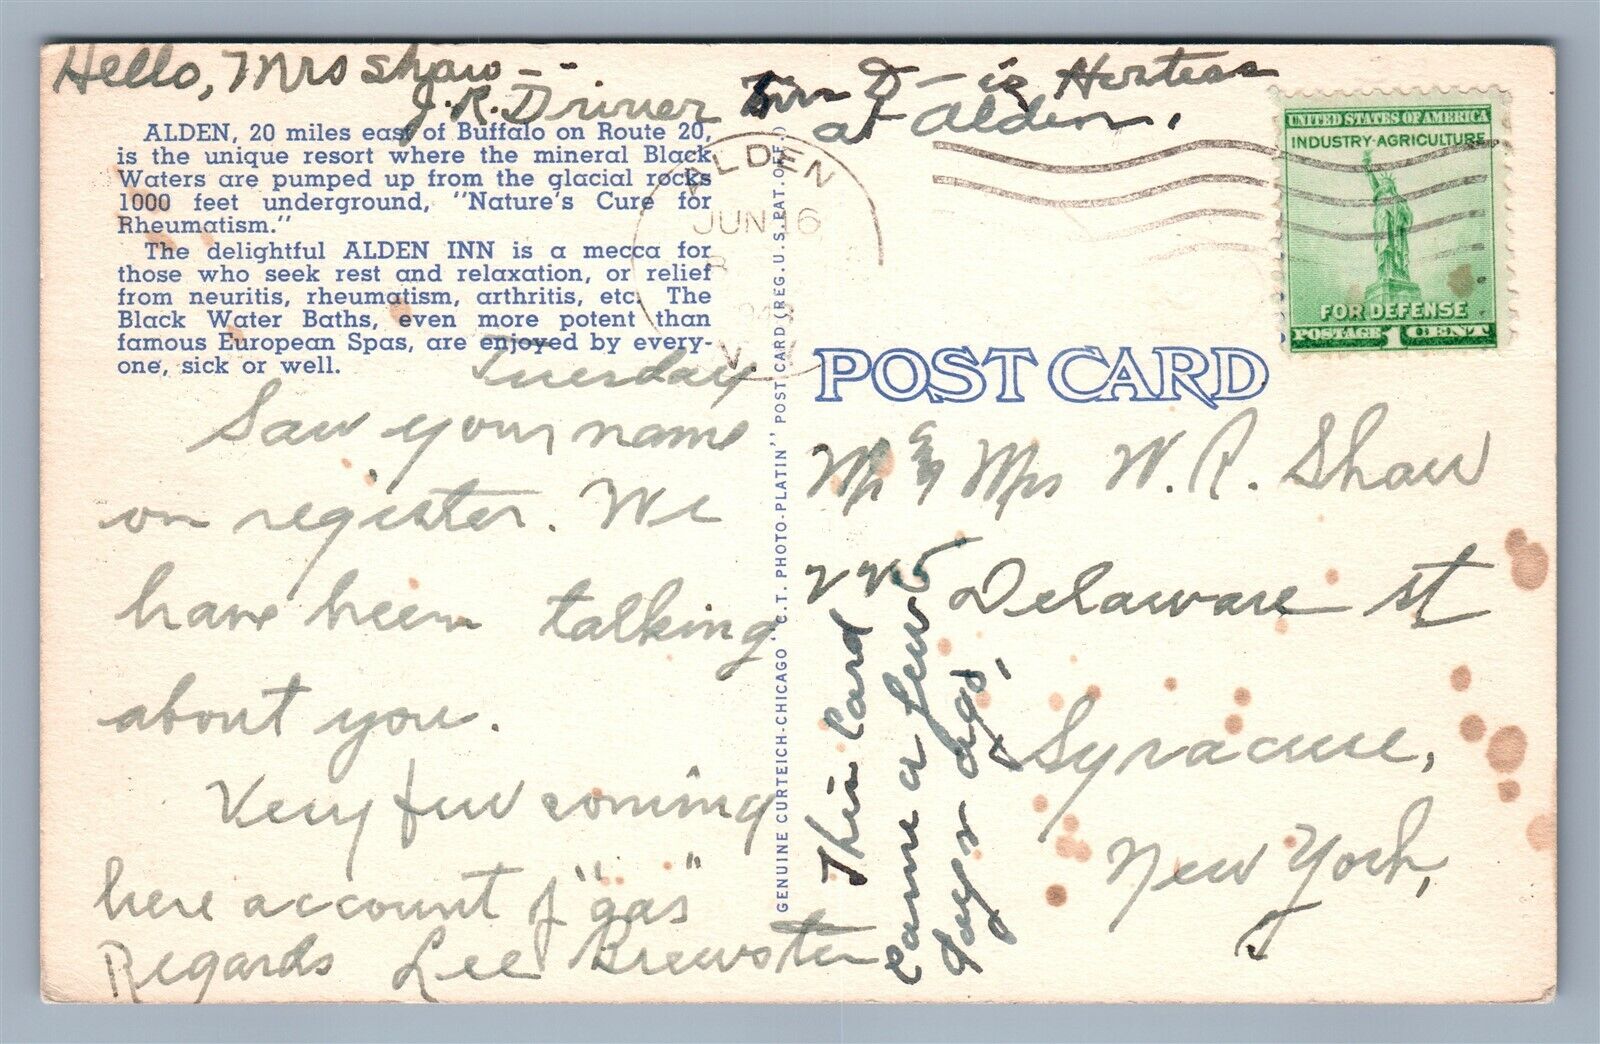 Hello, Mrs Shaw --
J. R. Driver
D- is Hostess
at Alden,
ALDEN, 20 miles east of Buffalo on Route 20,
is the unique resort where the mineral Black
Waters are pumped up from the glacial rocks
1000 feet underground, "Nature's Cure for
Rheumatism."
The delightful ALDEN INN is a mecca for
those who seek rest and relaxation, or relief
from neuritis, rheumatism, arthritis, etc. The
Black Water Baths, even more potent than
famous European Spas, are enjoyed by every-
one, sick or well.
Tuesday
Saw your name
on register. We
have been talking
about you.
Very few coming
here account of "gas"
Regards Lee Brewster
GENUINE CURTEICH-CHICAGO "C.T. PHOTO-PLATIN" POST CARD (REG. U.S. PAT. OFF.)
ALDEN
JUN 16
UNITED STATES OF AMERICA
INDUSTRY-AGRICULTURE
FOR DEFENSE
POSTAGE 1 CENT
POST CARD
Mr & Mrs W. R. Shaw
Delaware st
Syracuse,
New York,
This Card
Came a few
days ago,